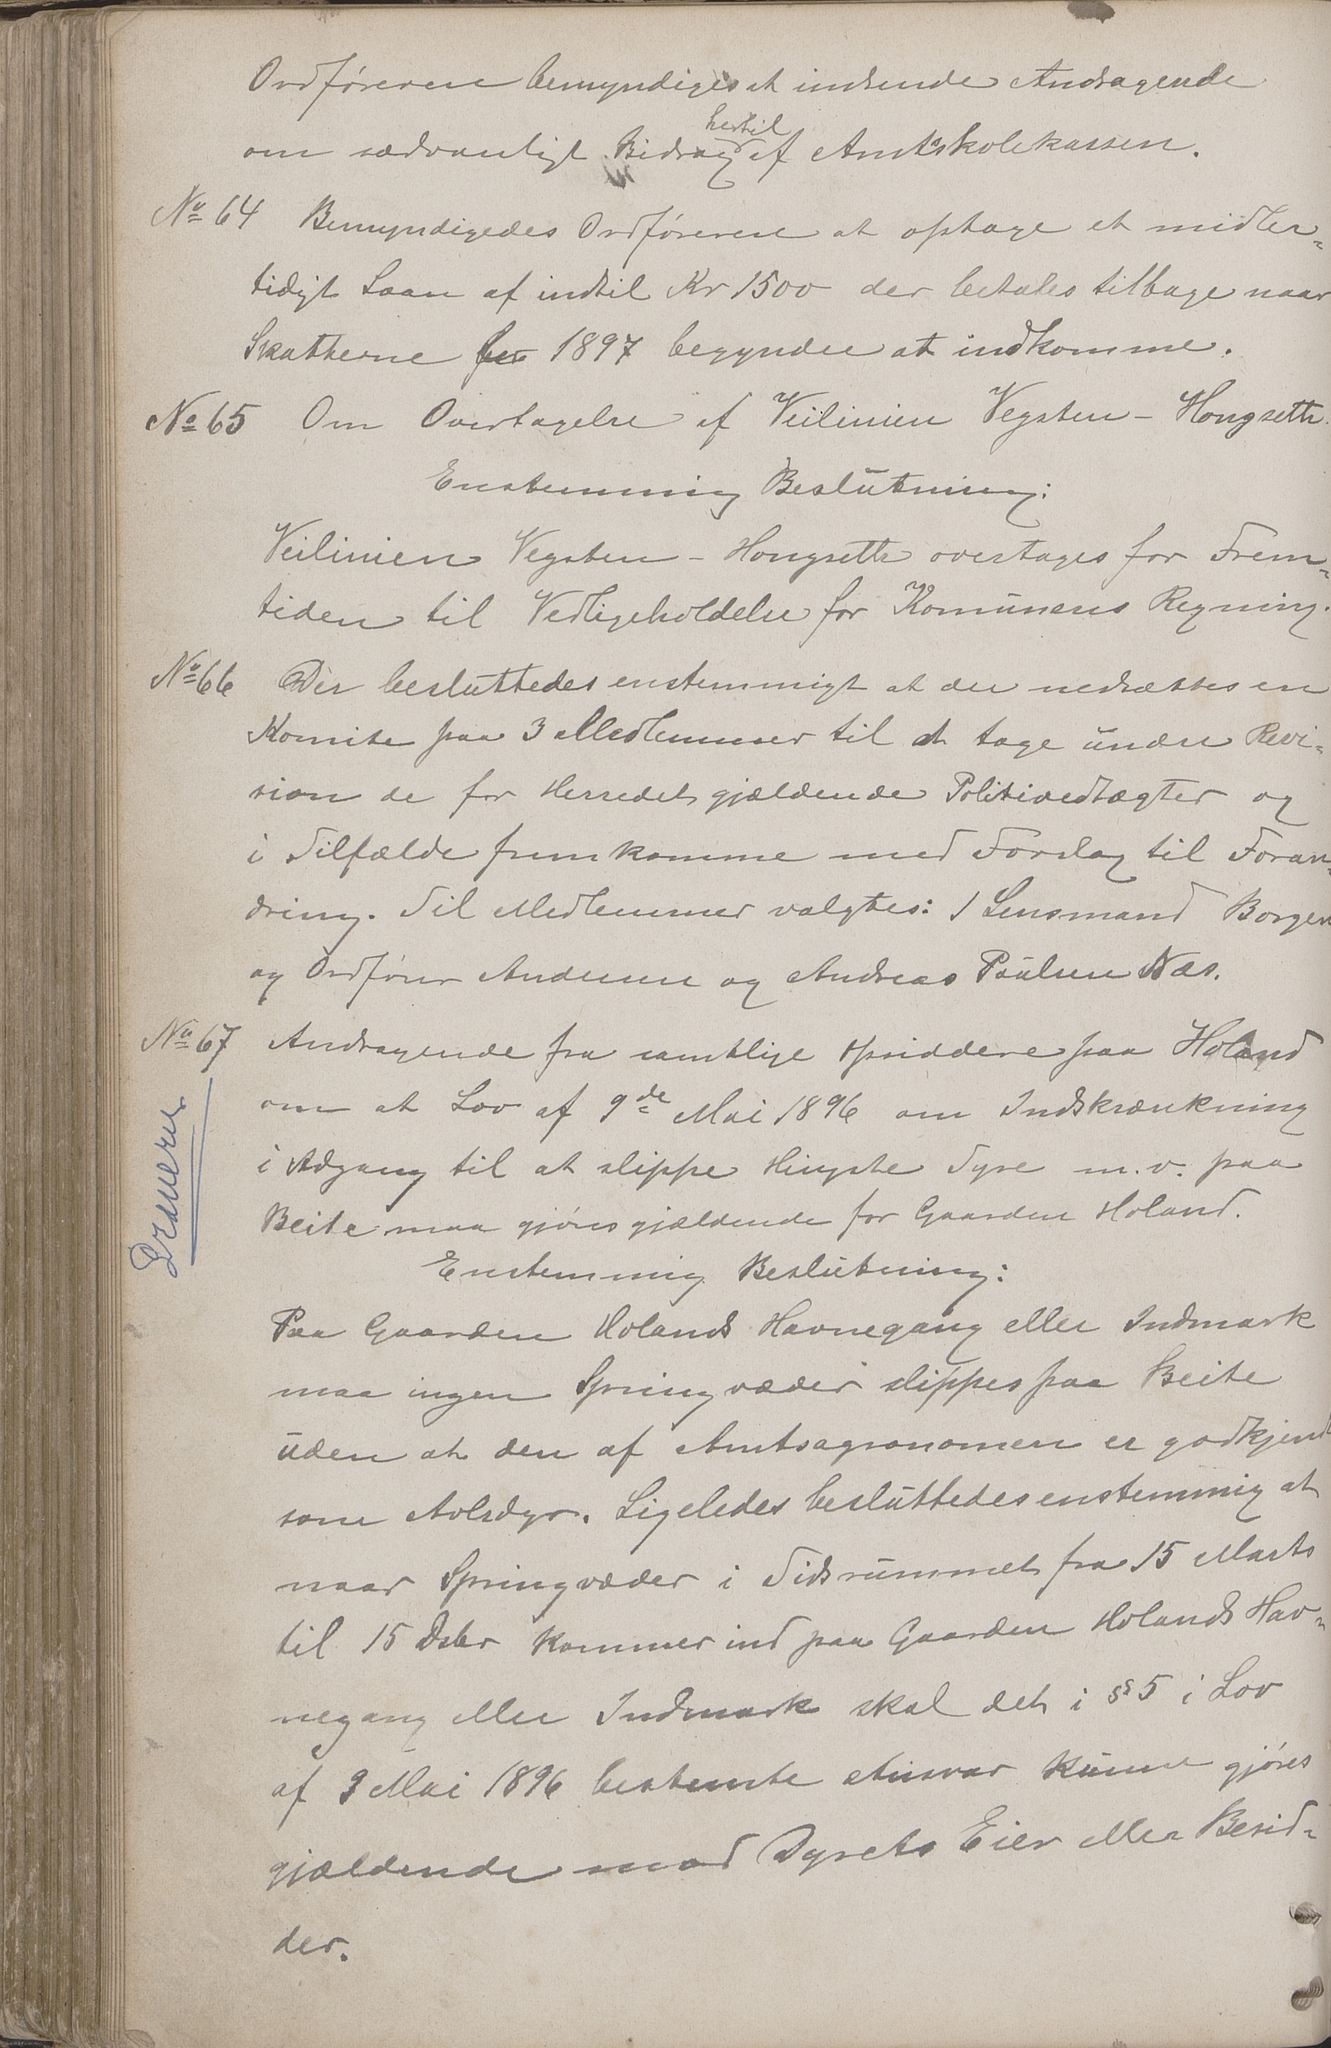 Ordføreren bemyndiges at indsende Andragende
om sædvanligt Bidrag hertil af Amtsskolekassen.
No 64 Bemyndigedes Ordføreren at optage et midler-
tidigt Laan af indtil Kr 1500 der betales tilbage naar
Skatterne for 1897 begynder at indkomme.
No 65 Om Overtagelse af Veilinien Vegsten - Hongseth.
Enstemmig Beslutning:
Veilinien Vegsten - Hongseth overtages for Frem-
tiden til Vedligeholdelse for Komunens Regning.
No 66 Der besluttedes enstemmigt at der nedsættes en
Komite paa 3 Medlemmer til at tage under Revi-
sion de for Herredet gjældende Politivedtægter og
i Tilfælde fremkomme med Forslag til Foran-
dring. Til Medlemmer valgtes: Lensmand Borgen
og Ordfører Andersen og Andreas Paulsen Næs.
No 67 Andragende fra samtlige Opsiddere paa Holand
om at Lov af 9de Mai 1896 om Indskrænkning
i Adgang til at slippe Hingste Tyre m.v. paa
Beite maa gjøres gjældende for Gaarden Holand.
Enstemmig Beslutning:
Paa Gaarden Holands Havnegang eller Indmark
maa ingen Springvæder slippes paa Beite
uden at den af Amtsagronomen er godkjendt
som Avlsdyr. Ligeledes besluttedes enstemmig at
naar Springvæder i Tidsrummet fra 15 Marts
til 15 Dsbr kommer ind paa Gaarden Holands Hav-
negang eller Indmark skal det i §§ 5 i Lov
af 9 Mai 1896 bestemte Ansvar kunne gjøres
gjældende mod Dyrets Eier eller Besid-
der.